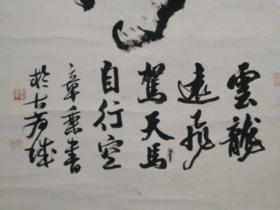 雲龍
遠飛
駕天馬
自行空
章秉書
於古宛城